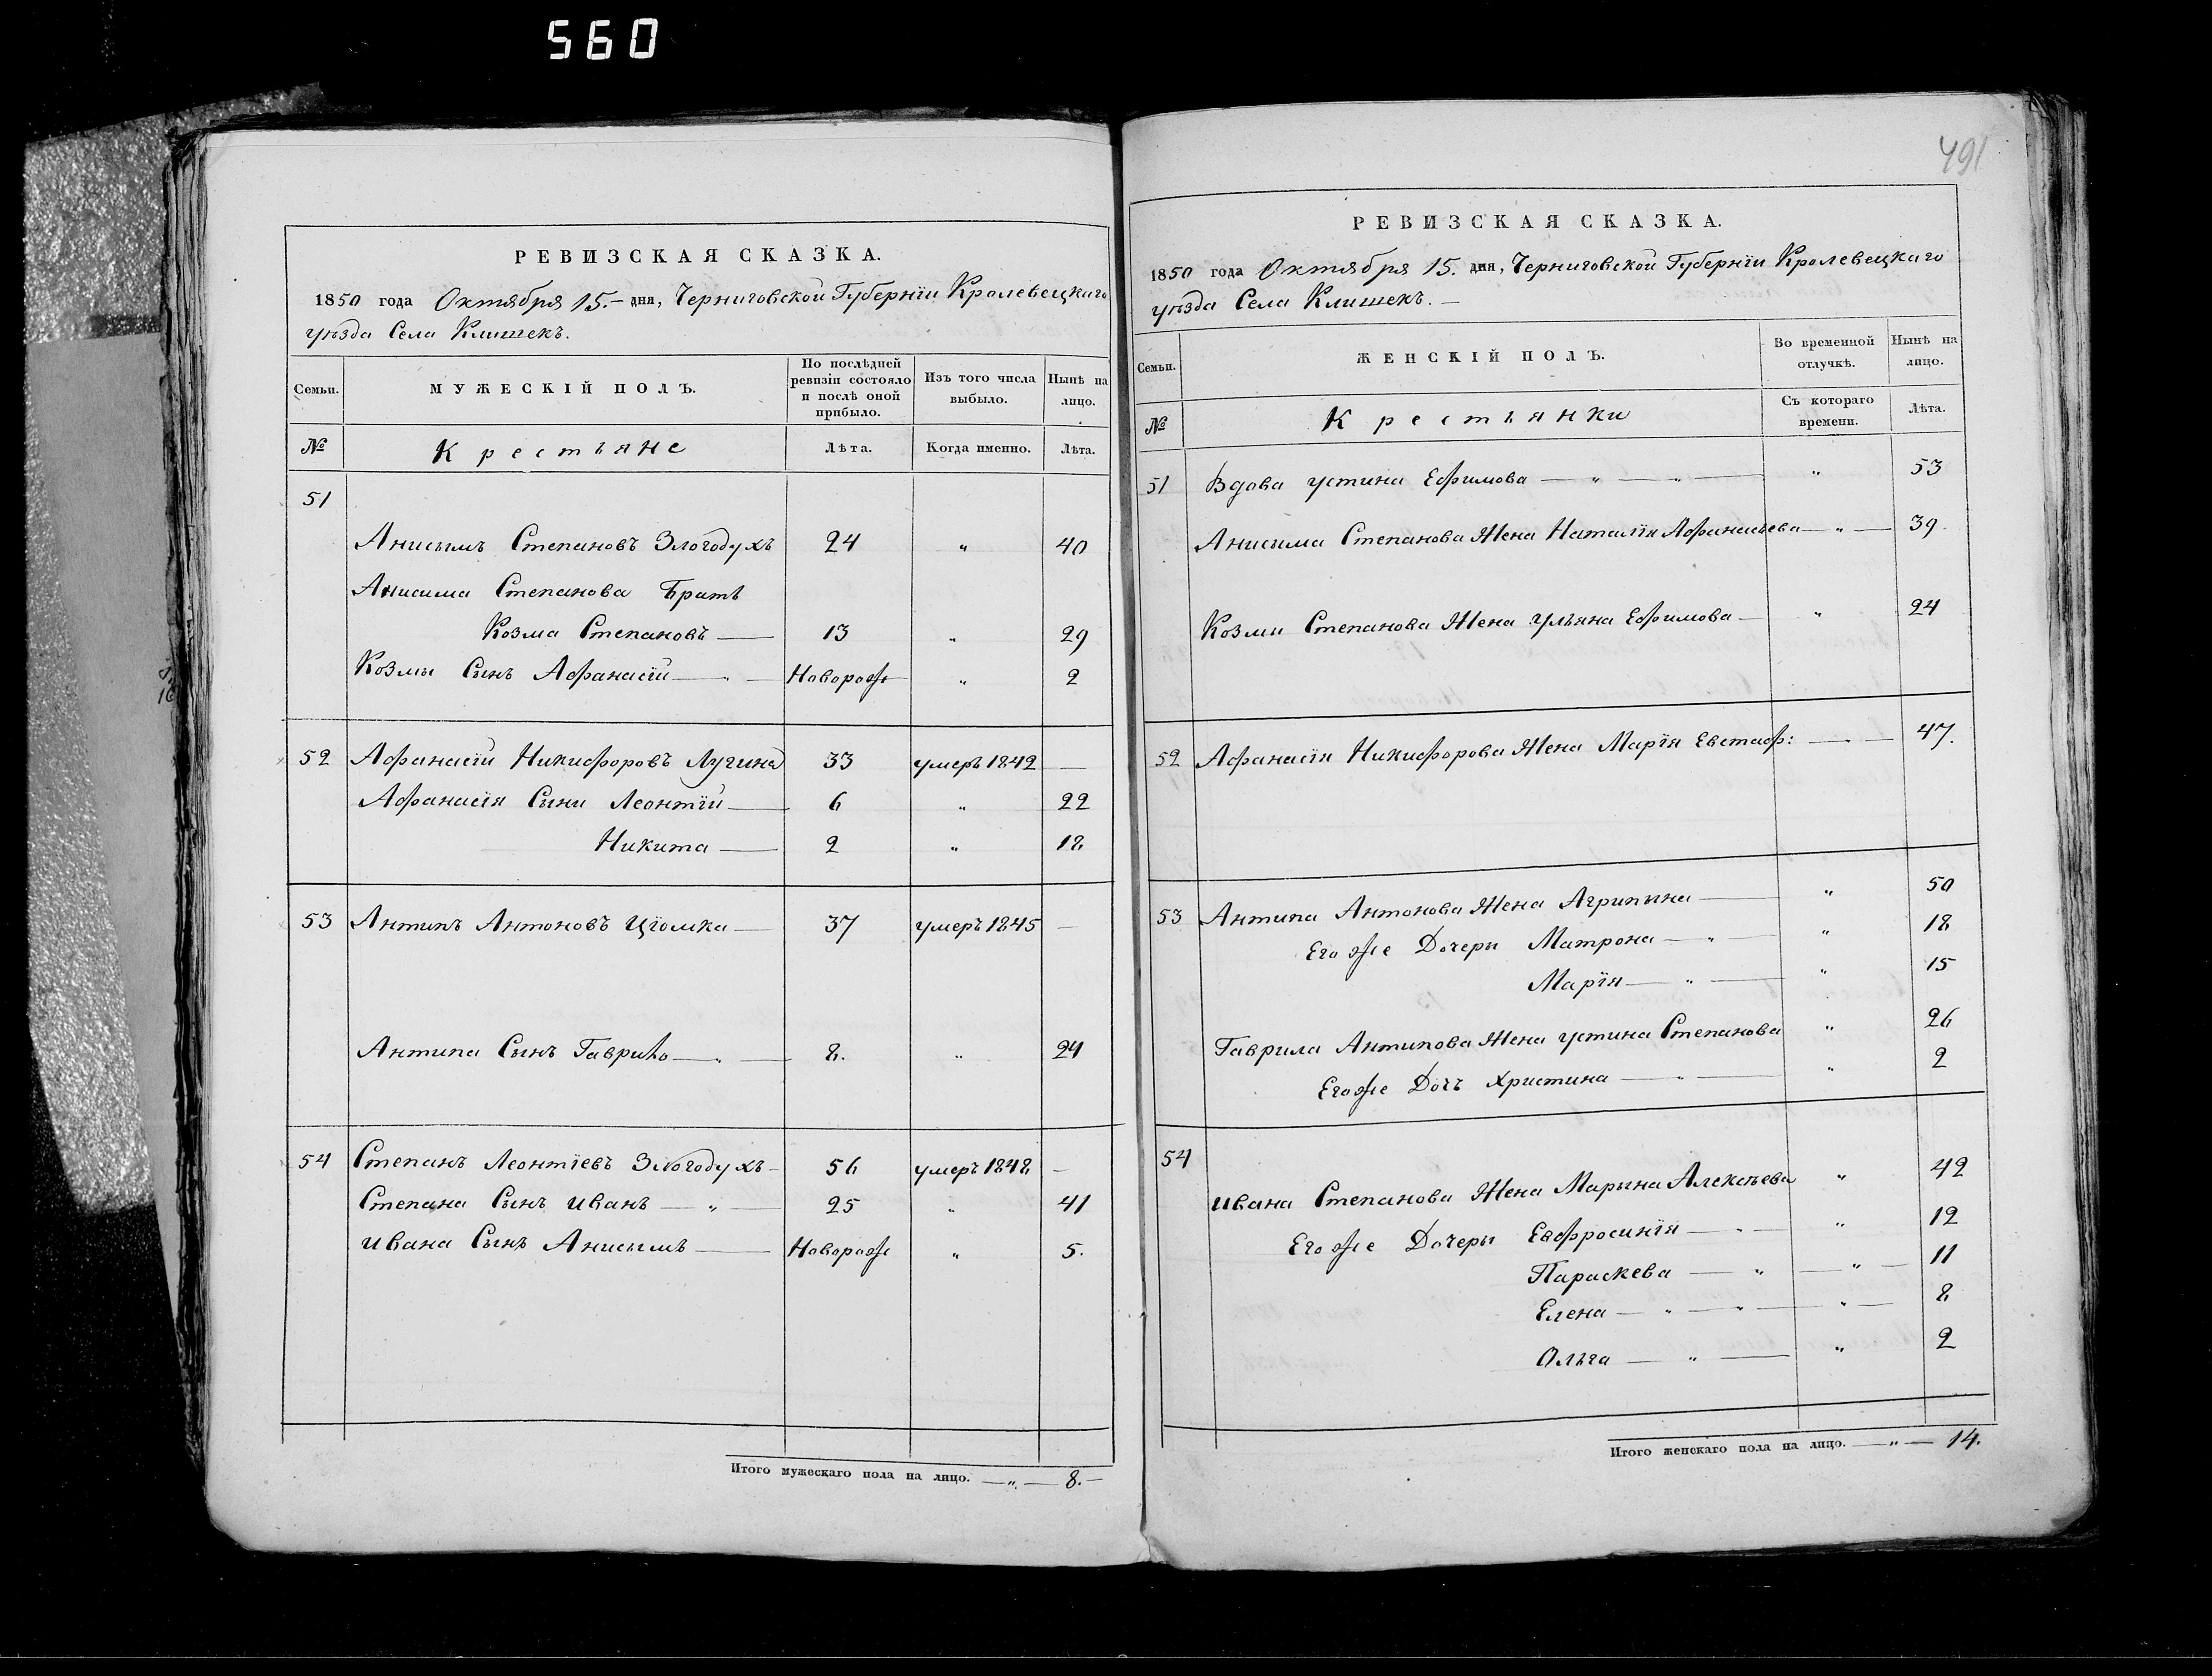 560
491
РЕВИЗСКАЯ СКАЗКА.
1850 года Октября 15.– дня, Черниговской Губернїи Кролевецкаго
уѣзда Села Клишекъ.
Семьи. МУЖЕСКІЙ ПОЛЪ. По послѣдней ревизіи состояло и послѣ оной прибыло. Изъ того числа выбыло. Нынѣ на лицо.
№ Крестьяне Лѣта. Когда именно. Лѣта.
51
Анисимъ Степановъ Злогодухъ 24 " 40
Анисима Степанова Братъ
Козма Степановъ — 13 " 29
Козмы Сынъ Афанасїй — " — Новорож " 2
52 Афанасїй Никифоровъ Лугина 33 умеръ 1842 —
Афанасїя Сыни Леонтїй — 6 " 22
Никита — 2 " 18
53 Антипъ Антоновъ — 37 умеръ 1845 —
Антипа Сынъ Гаврило — " — 8. " 24
54 Степанъ Леонтїевъ Злогодухъ – 56 умеръ 1848 —
Степана Сынъ Иванъ — " — 25 " 41
Ивана Сынъ Анисимъ — Новорож " 5.
Итого мужескаго пола на лицо. — " — 8.–
РЕВИЗСКАЯ СКАЗКА.
1850 года Октября 15. дня, Черниговской Губернїи Кролевецкаго
уѣзда Села Клишекъ. –
Семьи. ЖЕНСКІЙ ПОЛЪ. Во временной отлучкѣ. Нынѣ на лицо.
№ Крестьянки Съ котораго времени. Лѣта.
51 Вдова Устина Ефимова — " — " — " 53
Анисима Степанова Жена Наталїя Афанасьева — " — 39
Козми Степанова Жена Ульяна Ефимова – " 24
52 Афанасїя Никифорова Жена Марїя Евстаф: — " — 47.
53 Антипа Антонова Жена Агрипина — " 50
Его же Дочери Матрона — " — " 18
Марїя — " — " 15
Гаврила Антипова Жена Устина Степанова " 26
Его же Дочь Христина — " — " 2
54
Ивана Степанова Жена Марына Алексѣева " 42
Его же Дочеры Евфросинїя — " — " 12
Параскева — " — " — 11
Елена — " — " — " — 8
Ольга — " — " 2
Итого женскаго пола на лицо. — " — 14.